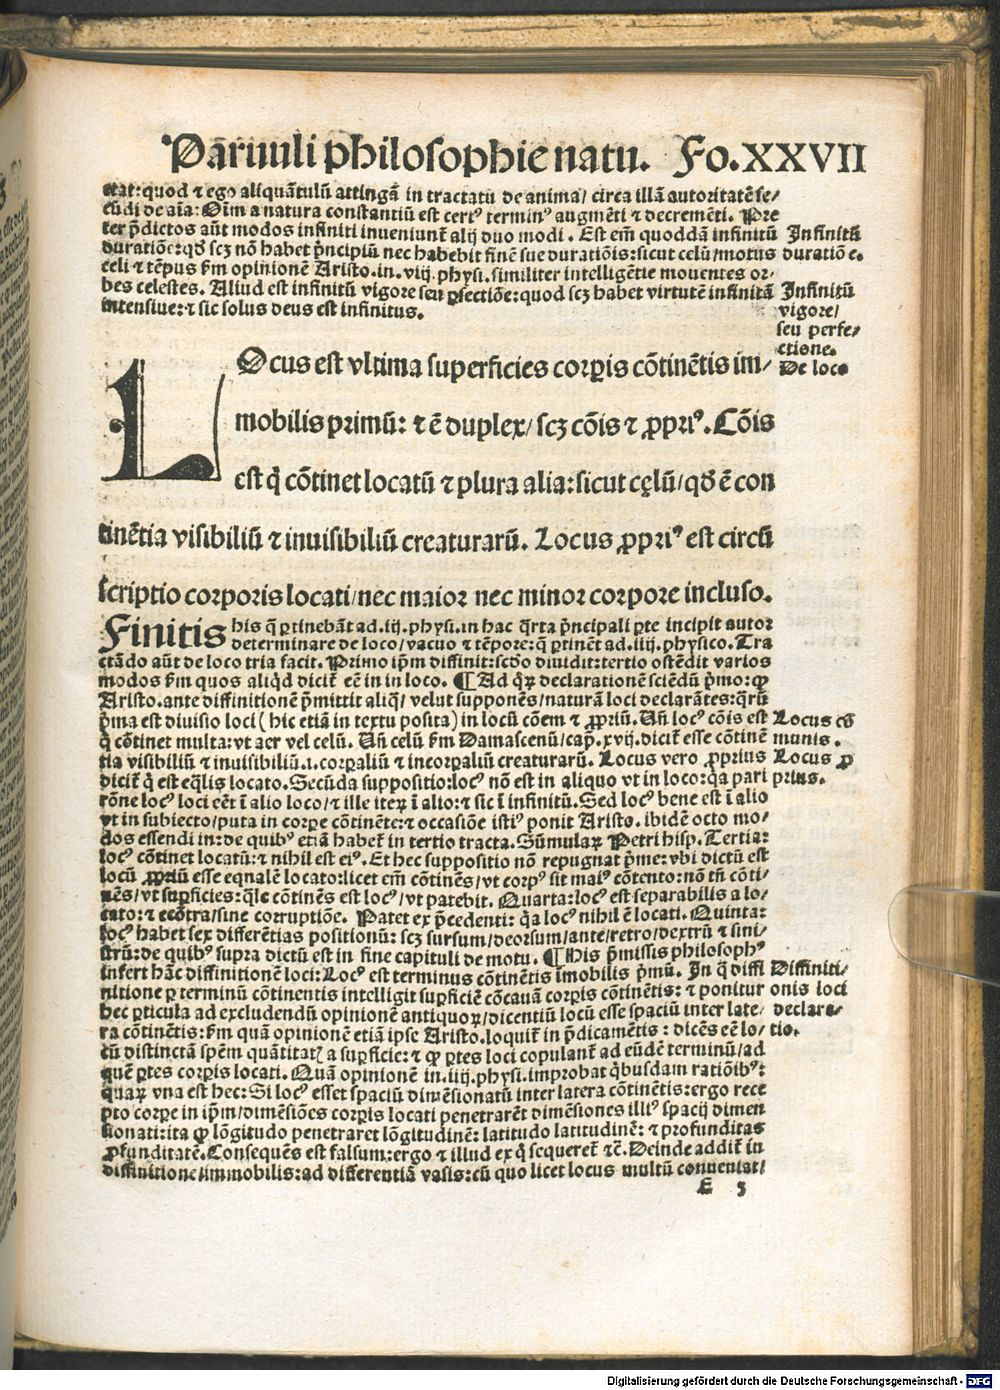 Pãruuli philosophie natu. Fo. XXVII
etat: quod ⁊ ego aliquãtulũ attingã in tractatu de anima/ circa illã autoritatẽ se⸗
cũdi de aĩa: Oĩm a natura constantiũ est certꝰ terminꝰ augmẽti ⁊ decremẽti. Pre
ter p̃dictos aũt modos infiniti inueniunt̃ alij duo modi. Est em̃ quoddã infinitũ
duratiõe: qđ scꝫ nõ habet p̃ncipiũ nec habebit finẽ sue duratiõis: sicut celũ/ motus
celi ⁊ tẽpus ẜm opinionẽ Aristo. in. viij. physi. similiter intelligẽtie mouentes or⸗
bes celestes. Aliud est infinitũ vigore seu ꝑfectiõe: quod scꝫ habet virtutẽ infinitã
intensiue: ⁊ sic solus deus est infinitus.
Infinitũ
duratiõe.
Infinitũ
vigore/
seu perfe⸗
ctione.
De loco
LOcus est vltima superficies corꝑis cõtinẽtis im⸗
mobilis primũ: ⁊ ẽ duplex/ scꝫ cõis ⁊ ꝓpriꝰ. Cõis
est q̃ cõtinet locatũ ⁊ plura alia: sicut cęlũ/ qđ ẽ con
tinẽtia visibiliũ ⁊ inuisibiliũ creaturarũ. Locus ꝓpriꝰ est circũ
scriptio corporis locati/ nec maior nec minor corpore incluso.
Finitis his q̃ ꝑtinebãt ad. iij. physi. in hac q̃rta p̃ncipali ꝑte incipit autor
determinare de loco/ vacuo ⁊ tẽpore: q̃ ꝑtinẽt ad. iiij. physico. Tra
ctãdo aũt de loco tria facit. Primo ip̃m diffinit: scđo diuidit: tertio ostẽdit varios
modos ẜm quos aliqđ dicit̃ eẽ in in loco. ¶ Ad q̃ꝝ declarationẽ sciẽdũ p̃mo: ꝙ
Aristo. ante diffinitionẽ p̃mittit aliq̃/ velut supponẽs/ naturã loci declarãtes: q̃rũ
p̃ma est diuisio loci (hic etiã in textu posita) in locũ cõem ⁊ ꝓpriũ. Añ locꝰ cõis est
q̃ cõtinet multa: vt aer vel celũ. Añ celũ ẜm Damascenũ/ cap̃. xvij. dicit̃ esse cõtinẽ
tia visibiliũ ⁊ inuisibiliũ. i. corꝑaliũ ⁊ incorꝑaliũ creaturarũ. Locus vero ꝓprius
dicit̃ q̃ est eq̃lis locato. Secũda suppositio: locꝰ nõ est in aliquo vt in loco: q̃a pari
rõne locꝰ loci eẽt ĩ alio loco/ ⁊ ille iteꝝ ĩ alio: ⁊ sic ĩ infinitũ. Sed locꝰ bene est ĩ alio
vt in subiecto/ puta in corꝑe cõtinẽte: ⁊ occasiõe istiꝰ ponit Aristo. ibidẽ octo mo⸗
dos essendi in: de quibꝰ etiã habet̃ in tertio tracta. Sũmulaꝝ Petri hisp. Tertia:
locꝰ cõtinet locatũ: ⁊ nihil est eiꝰ. Et hec suppositio nõ repugnat p̃me: vbi dictũ est
locũ ꝓpriũ esse equalẽ locato: licet em̃ cõtinẽs/ vt corpꝰ sit maiꝰ cõtento: nõ tñ cõti⸗
nẽs/ vt suꝑficies: q̃le cõtinẽs est locꝰ/ vt patebit. Quarta: locꝰ est separabilis a lo⸗
cato: ⁊ ecõtra/ sine corruptiõe. Patet ex p̃cedenti: q̃a locꝰ nihil ẽ locati. Quinta:
locꝰ habet sex differẽtias positionũ: scꝫ sursum/ deorsum/ ante/ retro/ dextrũ ⁊ sini⸗
strũ: de quibꝰ supra dictũ est in fine capituli de motu. ¶ His p̃missis philosophꝰ
infert hãc diffinitionẽ loci: Locꝰ est terminus cõtinẽtis ĩmobilis p̃mũ. In q̃ diffi
nitione ꝑ terminũ cõtinentis intelligit suꝑficiẽ cõcauã corꝑis cõtinẽtis: ⁊ ponitur
hec ꝑticula ad excludendũ opinionẽ antiquoꝝ/ dicentiũ locũ esse spaciũ inter late⸗
ra cõtinẽtis: ẜm quã opinionẽ etiã ipse Aristo. loquit̃ in p̃dicamẽtis: dicẽs eẽ lo⸗
cũ distinctã spẽm quãtitatꝭ a suꝑficie: ⁊ ꝙ ꝑtes loci copulant̃ ad eũdẽ terminũ/ ad
quẽ ꝑtes corꝑis locati. Quã opinionẽ in. iiij. physi. improbat q̃busdam ratiõibꝰ:
quaꝝ vna est hec: Si locꝰ esset spaciũ dimẽsionatũ inter latera cõtinẽtis: ergo rece
pto corꝑe in ip̃m/ dimẽsiões corꝑis locati penetrarẽt dimẽsiones illiꝰ spacij dimen
sionati: ita ꝙ lõgitudo penetraret lõgitudinẽ: latitudo latitudinẽ: ⁊ profunditas
ꝓfunditatẽ. Consequẽs est falsum: ergo ⁊ illud ex q̃ sequeret̃ ⁊c̃. Deinde addit̃ in
diffinitione/ immobilis: ad differentiã vasis: cũ quo licet locus multũ conueniat/
Locus cõ
munis.
Locus ꝓ
prius.
Diffiniti⸗
onis loci
declara⸗
tio.
E 3
Digitalisierung gefördert durch die Deutsche Forschungsgemeinschaft - DFG